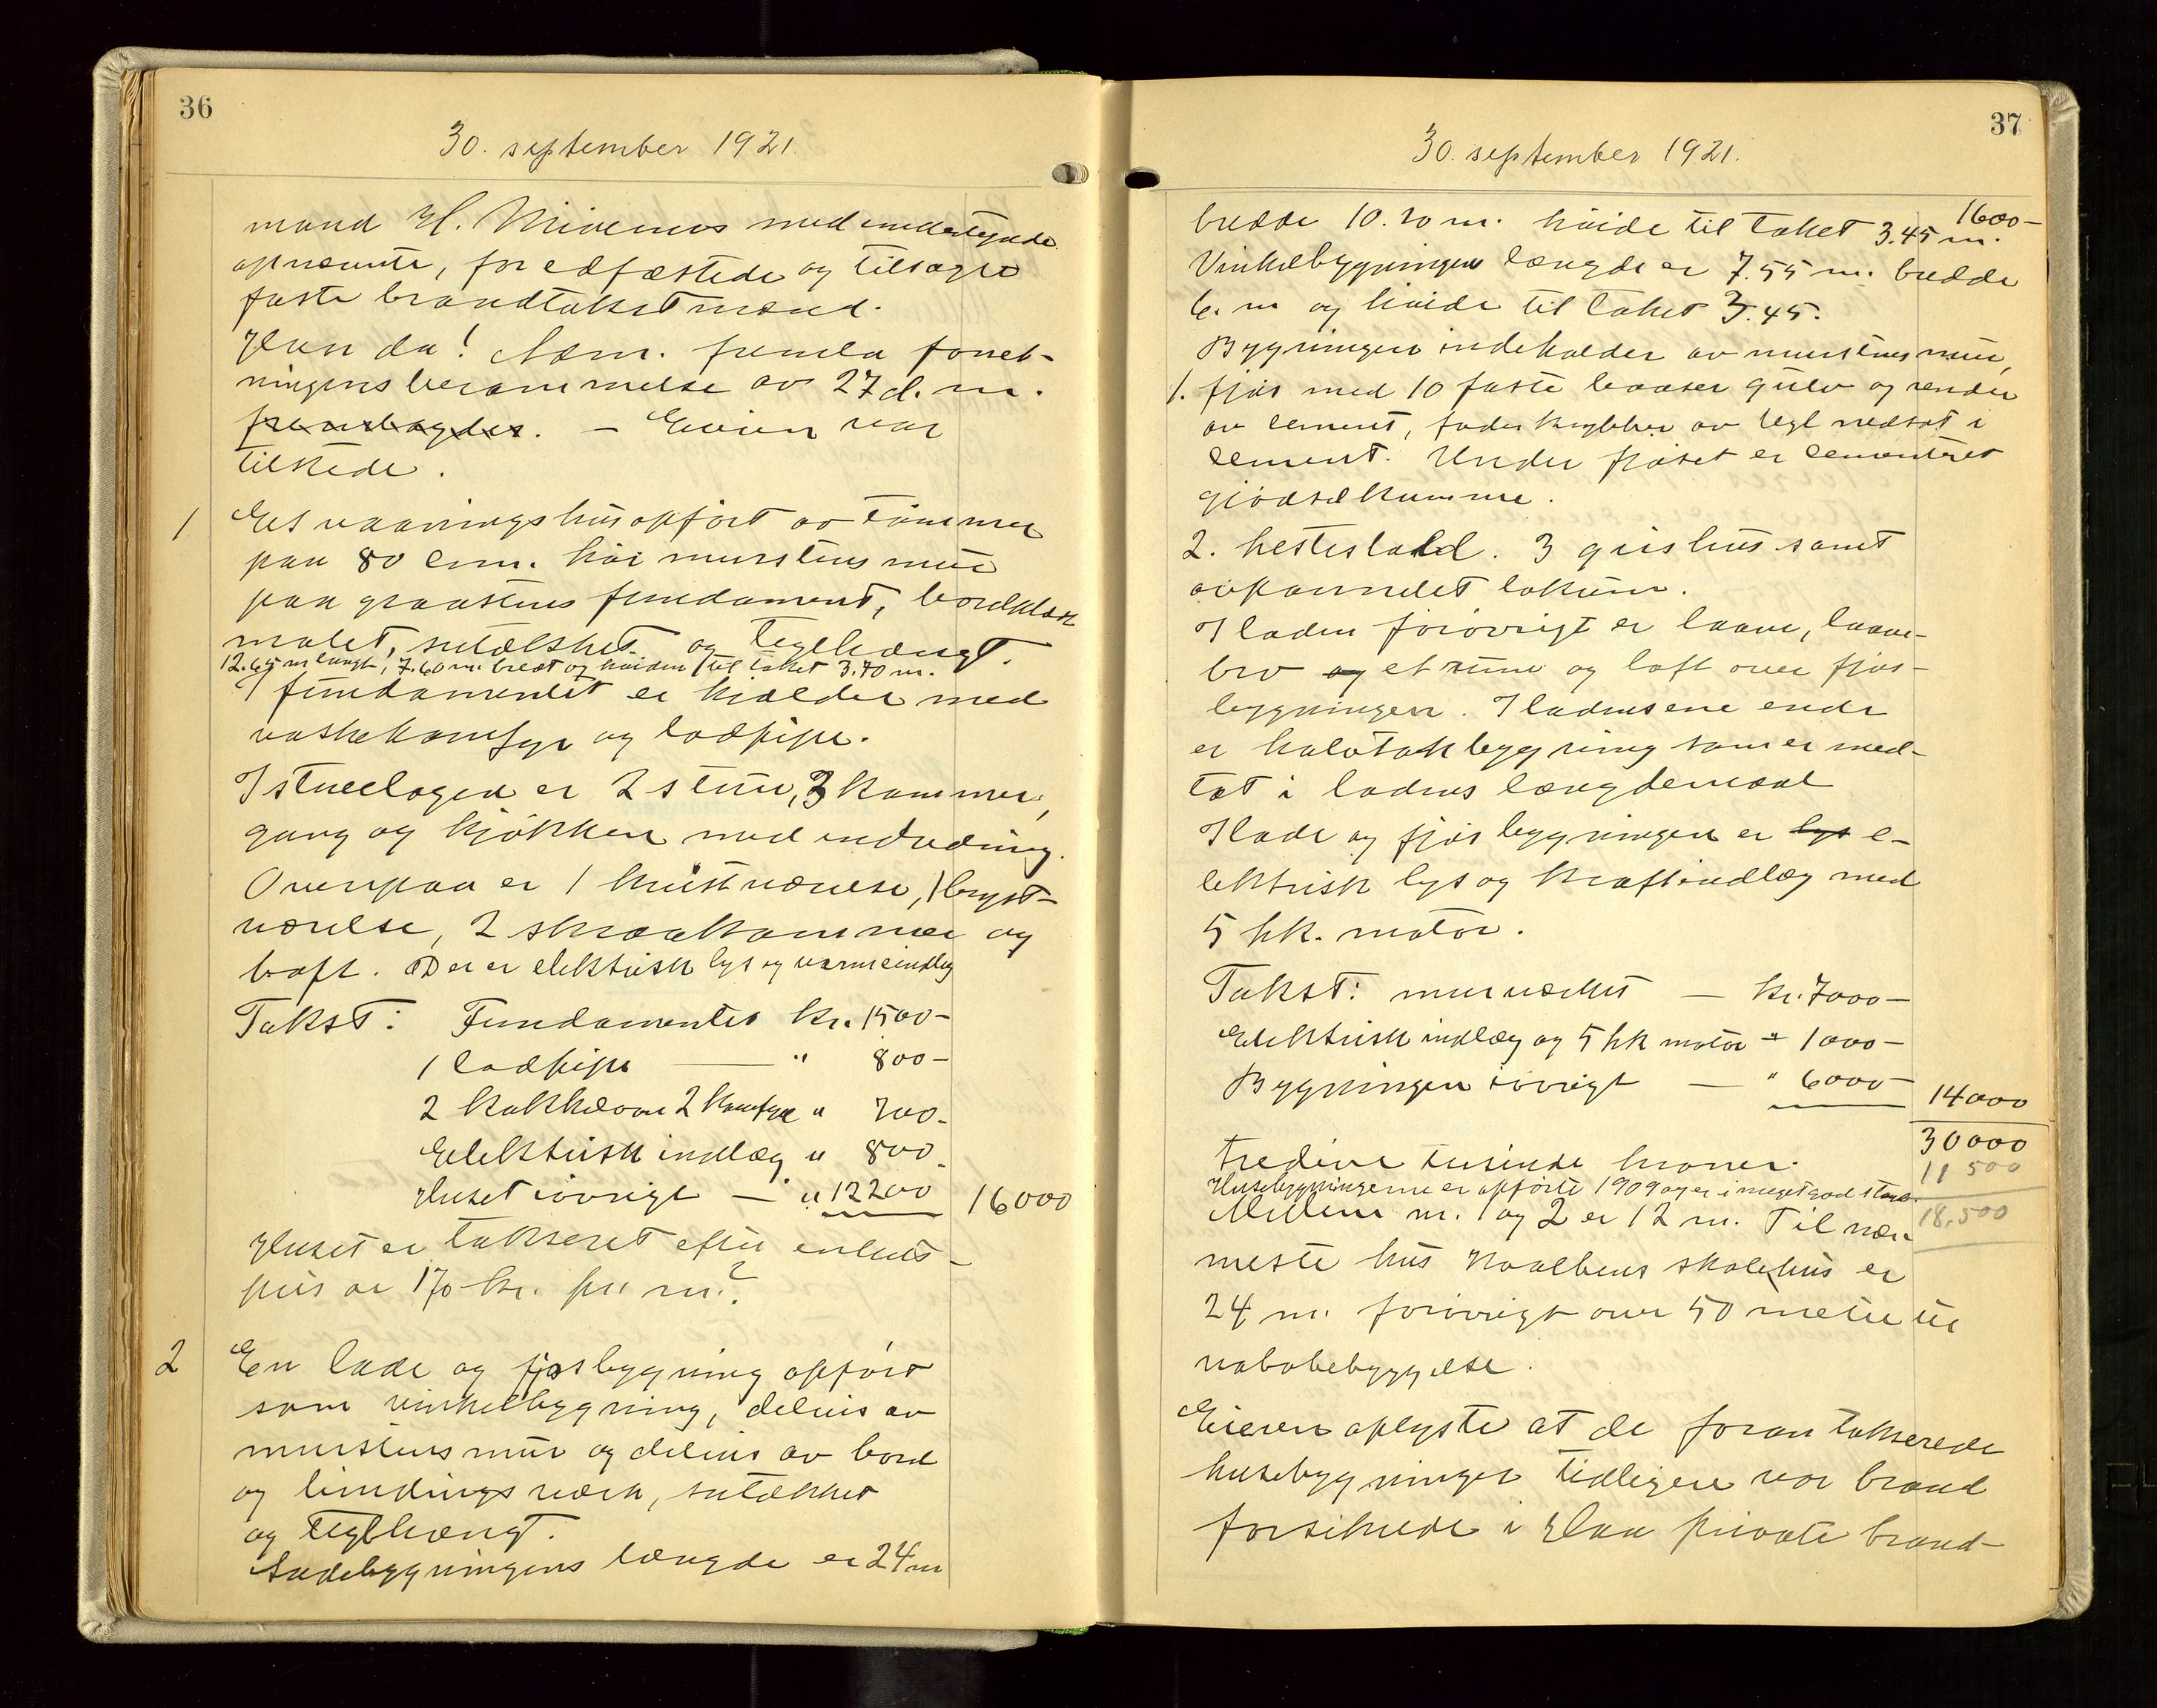 36
30. september 1921.
mand H. med undertegnede
opnævnte, for edfæstede og tilsagte
faste brandtakstmænd.
Hvor da! Adm. fremla forret-
ningens berammelse av 27 d. m.
fremlagdes. — Eieren var
tilstede.
1 Et vaaningshus opført av tømmer
paa 80 cm. høi murstens mur
paa graastens fundament, bordklædt
malet, sutækket og teglhængt.
12.65 m langt, 7.60 m. bredt og høiden til taket 3.70 m.
I fundamentet er kjælder med
vaskekomfyr og lodpipe.
I stueetagen er 2 stuer, 3 kammer,
gang og kjøkken med indredning.
Ovenpaa er 1 kvistværelse, 1 bryst-
værelse, 2 skraakammer og
loft. Der er elektrisk lys og varmeindlæg
Takst: Fundamentet kr. 1500-
1 lodpipe — " 800-
2 kakkelovne 2 komfyr " 700-
Elektrisk indlæg " 800-
Huset iøvrigt — " 12200 16000
Huset er taksert efter enhets-
pris av 170 kr. pr. m.²
2 En lade og fjøsbygning opført
som vinkelbygning, delvis av
murstens mur og delvis av bord
og bindingsverk, sutækket
og teglhængt.
Ladebygningens længde er 24 m
37
30. september 1921.
1600-
bredde 10.20 m. høide til taket 3.45 m.
Vinkelbygningen længde er 7.55 m. bredde
6. m og høide til taket 3.45.
Bygningen indeholder av murstens mur,
1. fjøs med 10 faste baaser gulv og render
av cement, foderkrybber av tegl nedsat i
cement. Under fjøset er cementeret
gjødselkumme.
2. hestestald. 3 grishus samt
avpannelet lokum.
I laden forøvrigt er laave, laave-
bro og et rum og loft over fjøs-
bygningen. I ladens ene ende
er halvtakbygning som er med-
tat i ladens længdemaal
I lade og fjøsbygningen er lys e-
lektrisk lys og kraftindlæg med
5 hk. motor.
Takst: murverket — kr. 7000-
Elektrisk indlæg og 5 hk motor " 1000-
Bygningen iøvrigt — " 6000- 14000
30000
tredive tusinde kroner. 11 500
Husebygningerne er opførte 1909 og er i meget god stand.
Mellem nr. 1 og 2 er 12 m. Til nær- 18.500
meste hus Kvalbens skolehus er
24 m. forøvrigt over 50 meter til
nabobebyggelse.
Eieren oplyste at de foran takserede
husebygninger tidligere var brand
forsikrede i Haa private brand-